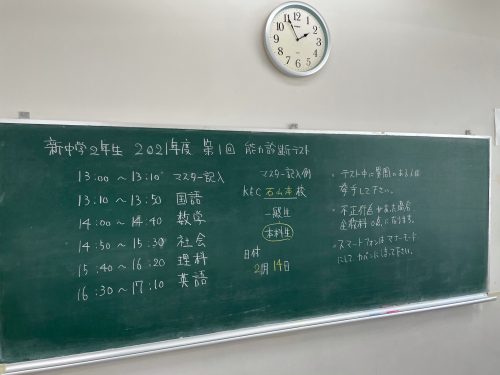 新中学2年生 2021年度 第1回 能力診断テスト
13:00 ～ 13:10 マスター記入
13:10 ～ 13:50 国語
14:00 ～ 14:40 数学
14:50 ～ 15:30 社会
15:40 ～ 16:20 理科
16:30 ～ 17:10 英語
マスター記入例
KEC 石山本校
一般生
本科生
日付
2月14日
・テスト中に質問のある人は
挙手して下さい。
・不正行為があった場合
全教科0点になります。
・スマートフォンはマナーモード
にして カバンにしまって下さい。